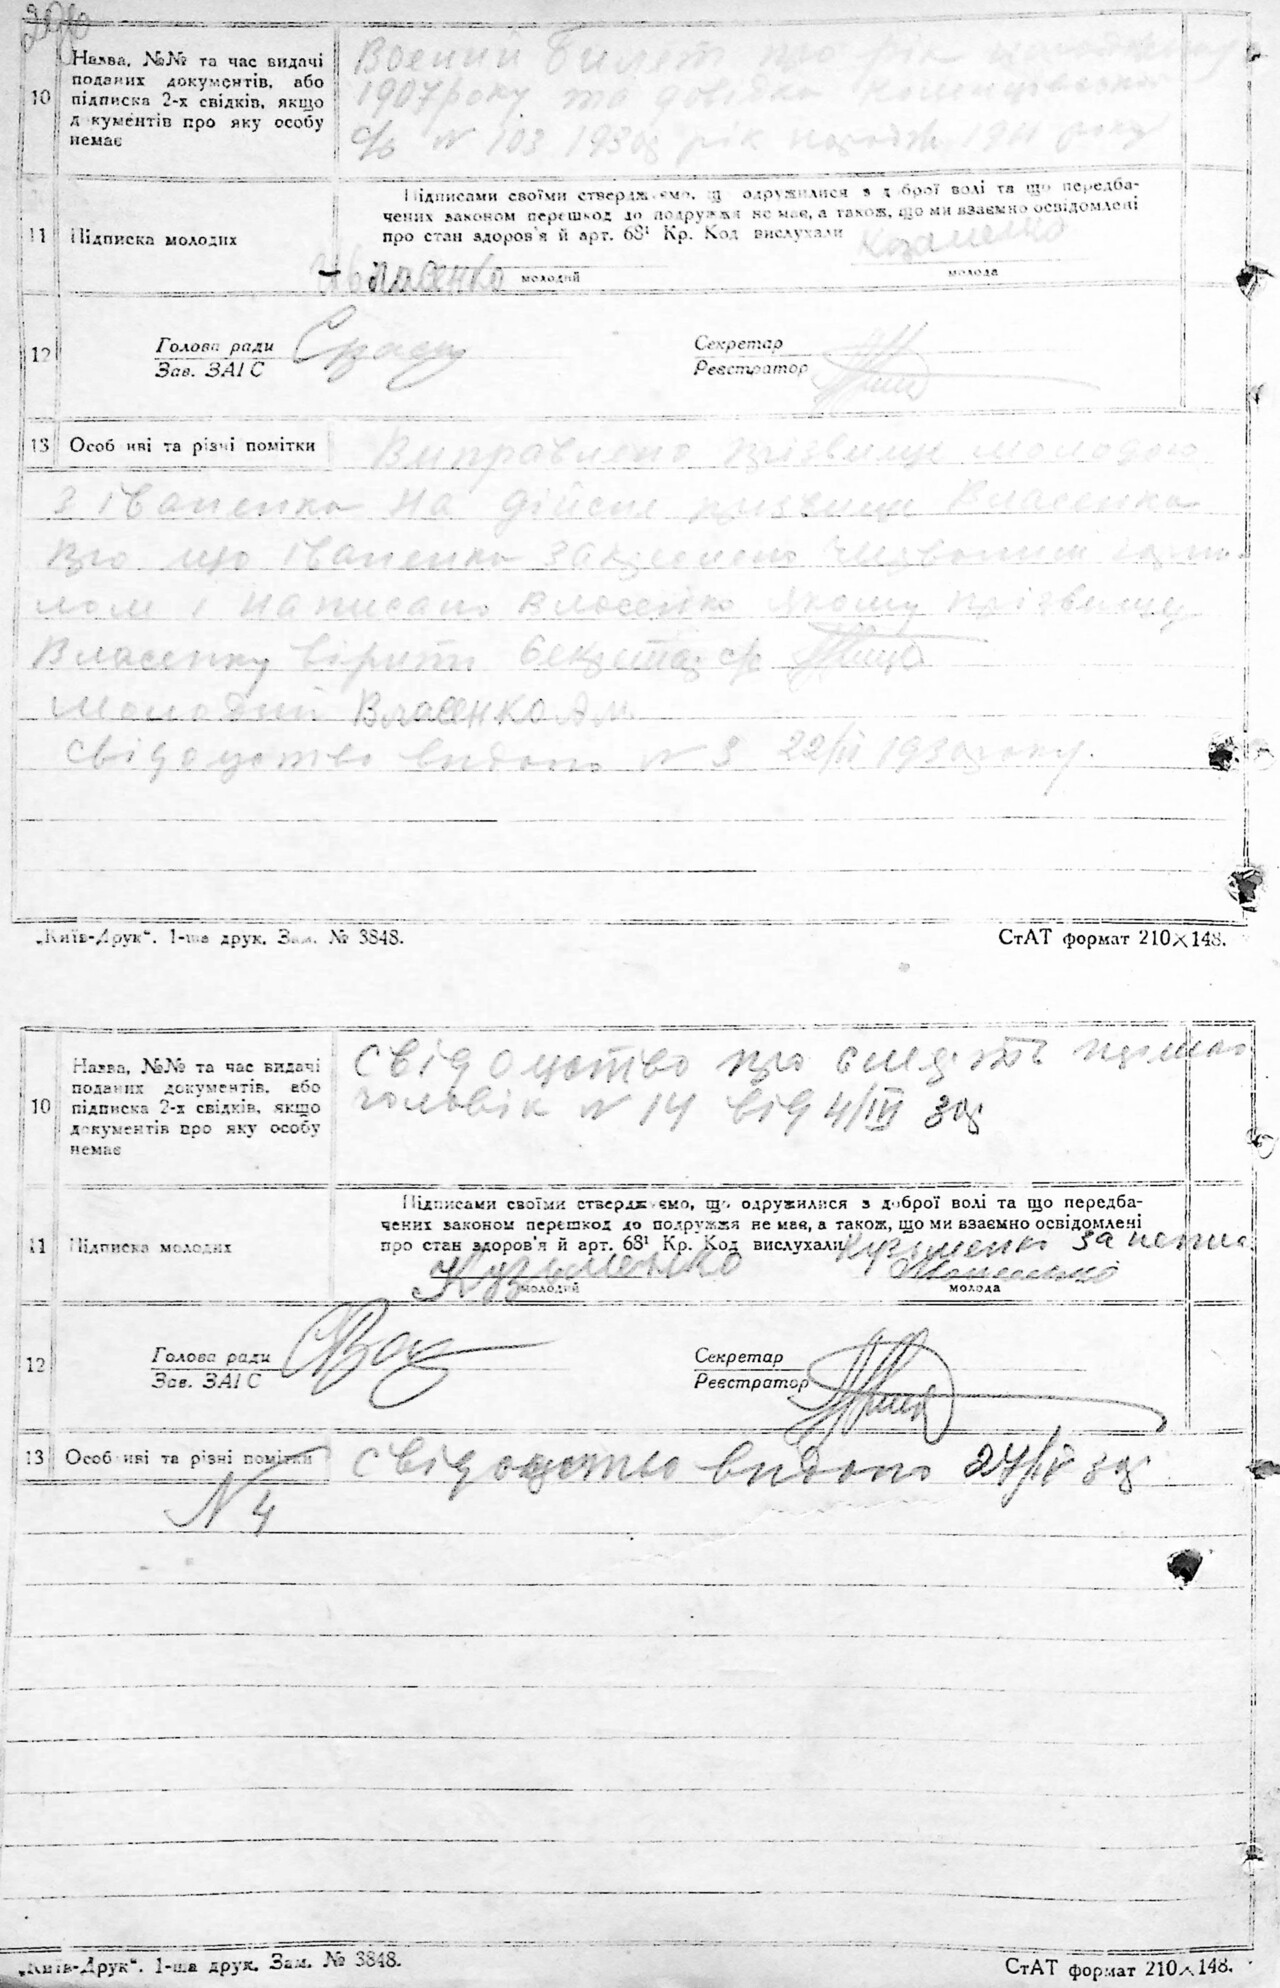 Назва, №№ та час видачі
поданих документів, або
10 підписка 2-х свідків, якщо
документів про яку особу
немає
Воений билет про рік
1907 року та довідка
с/р N 103 1930 рік 1911 року
Підписами своїми стверджуємо, що одружилися з доброї волі та що передба-
чених законом перешкод до подружжя не має, а також, що ми взаємно освідомлені
11 Підписка молодих про стан здоров'я й арт. 68¹ Кр. Код вислухали
молодий молода
12 Голова ради Секретар
Зав. ЗАГС Реєстратор
13 Особливі та різні помітки Виправлено прізвище молодого
з Іваненка на дійсне прізвище Власенка
про що Іваненка закреслено
і написано Власенко якому прізвищу
Власенку вірити Секретар с/р
молодий Власенко А М.
свідоцтво видано N 3 22/ІІ 1930 року.
„Київ-Друк“. 1-ша друк. Зам. № 3848. СтАТ формат 210×148.
Назва, №№ та час видачі
поданих документів, або
10 підписка 2-х свідків, якщо
документів про яку особу
немає
свідоцтво про смерть
чоловік N 14 від 4/ІІІ 30р
Підписами своїми стверджуємо, що одружилися з доброї волі та що передба-
чених законом перешкод до подружжя не має, а також, що ми взаємно освідомлені
11 Підписка молодих про стан здоров'я й арт. 68¹ Кр. Код вислухали Кузьменко за
Кузьменко
молодий молода
12 Голова ради Секретар
Зав. ЗАГС Реєстратор
13 Особливі та різні помітки свідоцтво видано 24/ІV 30р
N 4
„Київ-Друк“. 1-ша друк. Зам. № 3848. СтАТ формат 210×148.